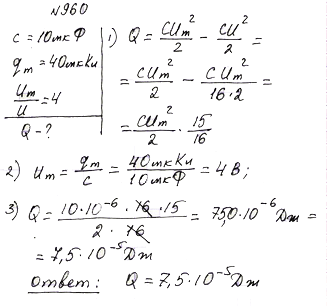 №960
c = 10мкФ
qm = 40мкКл
Um/U = 4
Q - ?
1) Q = CUm²/2 - CU²/2 =
= CUm²/2 - CUm²/16·2 =
= CUm²/2 · 15/16
2) Um = qm/c = 40мкКл/10мкФ = 4 В;
3) Q = 10·10⁻⁶·16·15/2·16 = 750·10⁻⁶Дж =
= 7,5·10⁻⁵Дж
Ответ: Q = 7,5·10⁻⁵Дж